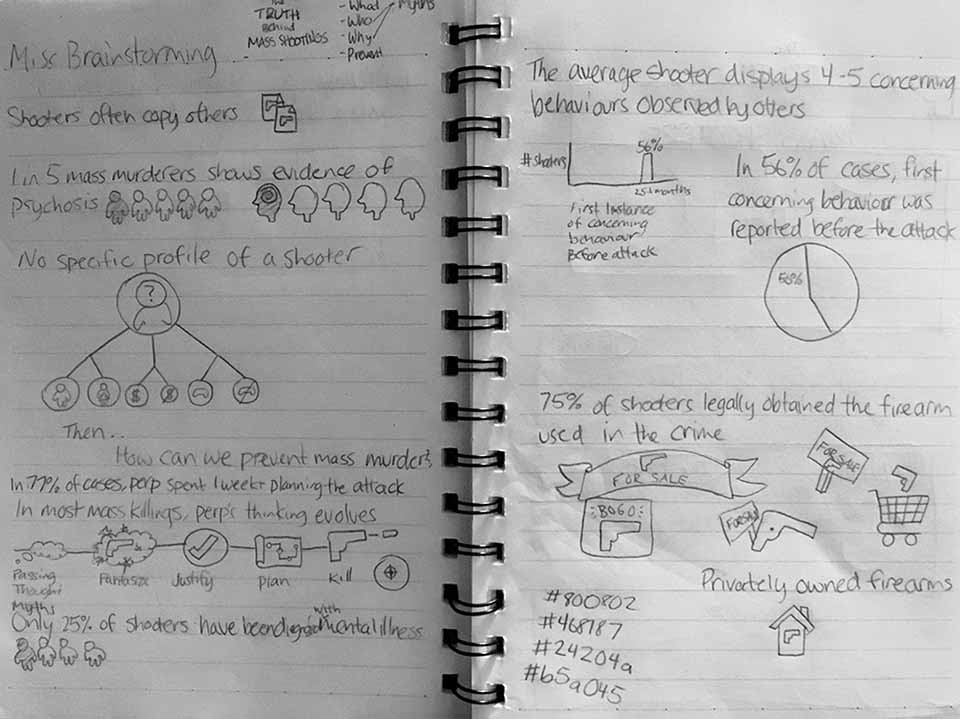 The
TRUTH
Behind
MASS SHOOTINGS
- What
- Who
- Why
- Prevent
Myths
Misc Brainstorming
Shooters often copy others
1 in 5 mass murderers shows evidence of
psychosis
No specific profile of a shooter
?
$ $
Then..
How can we prevent mass murders
In 77% of cases, perp spent 1 week+ planning the attack
In most mass killings, perp's thinking evolves
Passing
Thought
Fantasize
Justify
plan
Kill
Myths
Only 25% of shooters have been with mental illness
The average shooter displays 4-5 concerning
behaviours observed by others
# shooters
56%
25.1 months
First Instance
of concerning
behaviour
before attack
In 56% of cases, first
concerning behaviour was
reported before the attack
56%
75% of shooters legally obtained the firearm
used in the crime
FOR SALE
BOGO
FOR SALE
FOR SALE
Privately owned firearms
#800802
#468187
#24204a
#b5a045